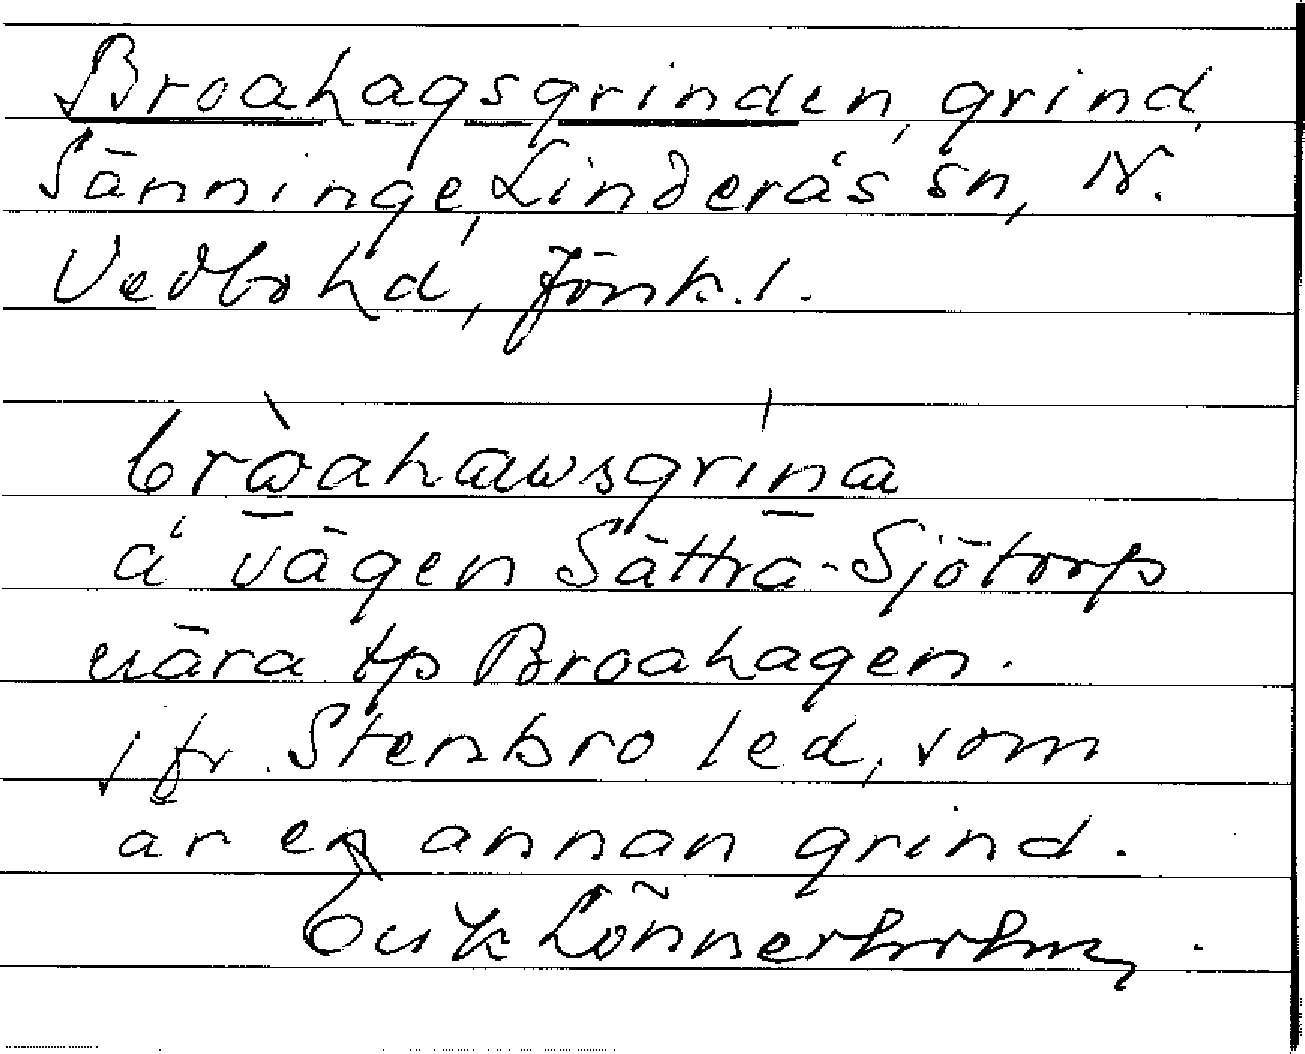 Broahagsgrinden, grind,
Sänninge, Linderås sn, N.
Vedbo hd, Jönk. l.
bròahawsgrína
å vägen Sättra-Sjötorp
nära tp Broahagen.
jfr. Stenbro led, som
är en annan grind.
Erik Lönnerholm.